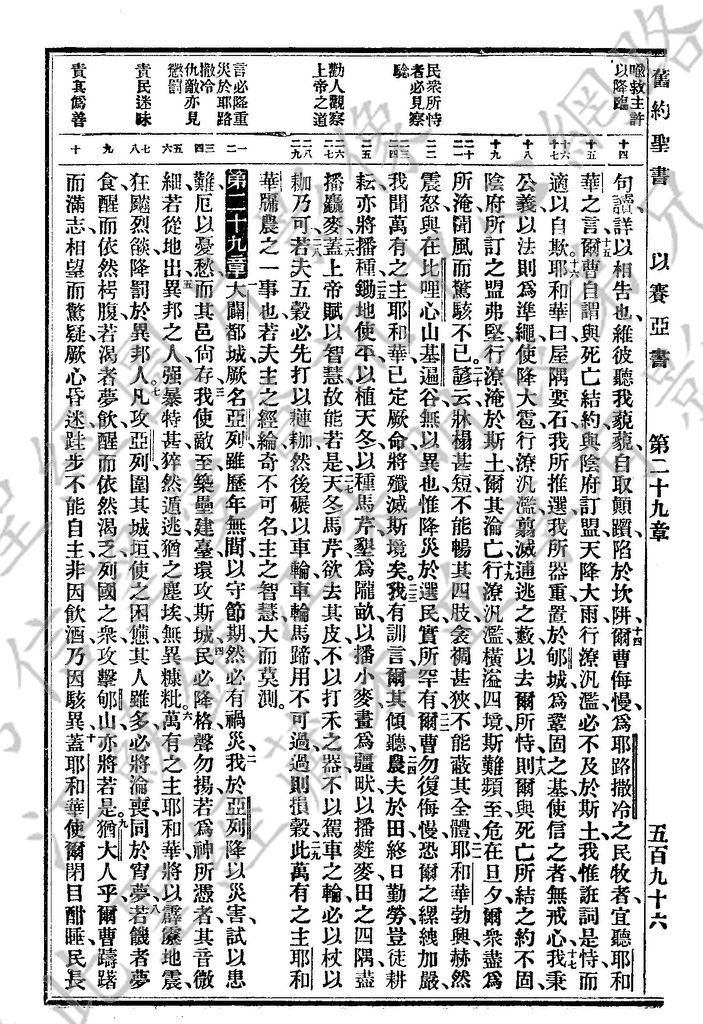 舊約聖書 以賽亞書 第二十九章 五百九十六
句讀詳以相告也維彼聽我藐藐自取顚躓陷於坎阱爾曹侮慢爲耶路撒冷之民牧者宜聽耶和
華之言爾曹自謂與死亡結約與陰府訂盟天降大雨行潦汎濫必不及於斯土我惟誑詞是恃而
適以自欺耶和華曰屋隅要石我所推選我所器重置於郇城爲鞏固之基使信之者無戒心我秉
公義以法則爲準繩使降大雹行潦汎濫翦滅逋逃之藪以去爾所恃則爾與死亡所結之約不固
陰府所訂之盟弗堅行潦淹於斯土爾其淪亡行潦汎濫橫溢四境斯難頻至危在旦夕爾衆盡爲
所淹聞風而驚駭不已諺云牀榻甚短不能暢其四肢衾裯甚狹不能蔽其全體耶和華勃興赫然
震怒與在比哩心山基遍谷無以異也惟降災於選民實所罕有爾曹勿復侮慢恐爾之縲絏加嚴
我聞萬有之主耶和華已定厥命將殲滅斯境矣我有訓言爾其傾聽農夫於田終日勤勞豈徒耕
耘亦將播種鋤地使平以植天冬以種馬芹墾爲隴畝以播小麥畫爲疆畎以播麰麥田之四隅盡
播麤麥蓋上帝賦以智慧故能若是天冬馬芹欲去其皮不以打禾之器不以駕車之輪必以杖以
耞乃可若夫五穀必先打以槤耞然後碾以車輪車輪馬蹄用不可過過則損穀此萬有之主耶和
華隲農之一事也若夫主之經綸奇不可名主之智慧大而莫測
第二十九章 大闢都城厥名亞列雖歷年無間以守節期然必有禍災我於亞列降以災害試以患
難厄以憂愁而其邑尙存我使敵至築壘建臺環攻斯城民必降格聲勿揚若爲神所憑者其音微
細若從地出異邦之人强暴特甚猝然遁逃猶之塵埃無異糠粃萬有之主耶和華將以霹靂地震
狂飈烈燄降罰於異邦人凡攻亞列圍其城垣使之困憊其人雖多必將淪喪同於宵夢若饑者夢
食醒而依然枵腹若渴者夢飲醒而依然渴乏列國之衆攻擊郇山亦將若是猶大人乎爾曹躊躇
而滿志相望而驚疑厥心昏迷跬步不能自主非因飲酒乃因駭異蓋耶和華使爾閉目酣睡民長
喩救主許
以降臨
民衆所恃
者必見察
驗
勸人觀察
上帝之道
言必降重
災於耶路
撒冷
仇敵亦見
懲罰
責民迷昧
責其僞善